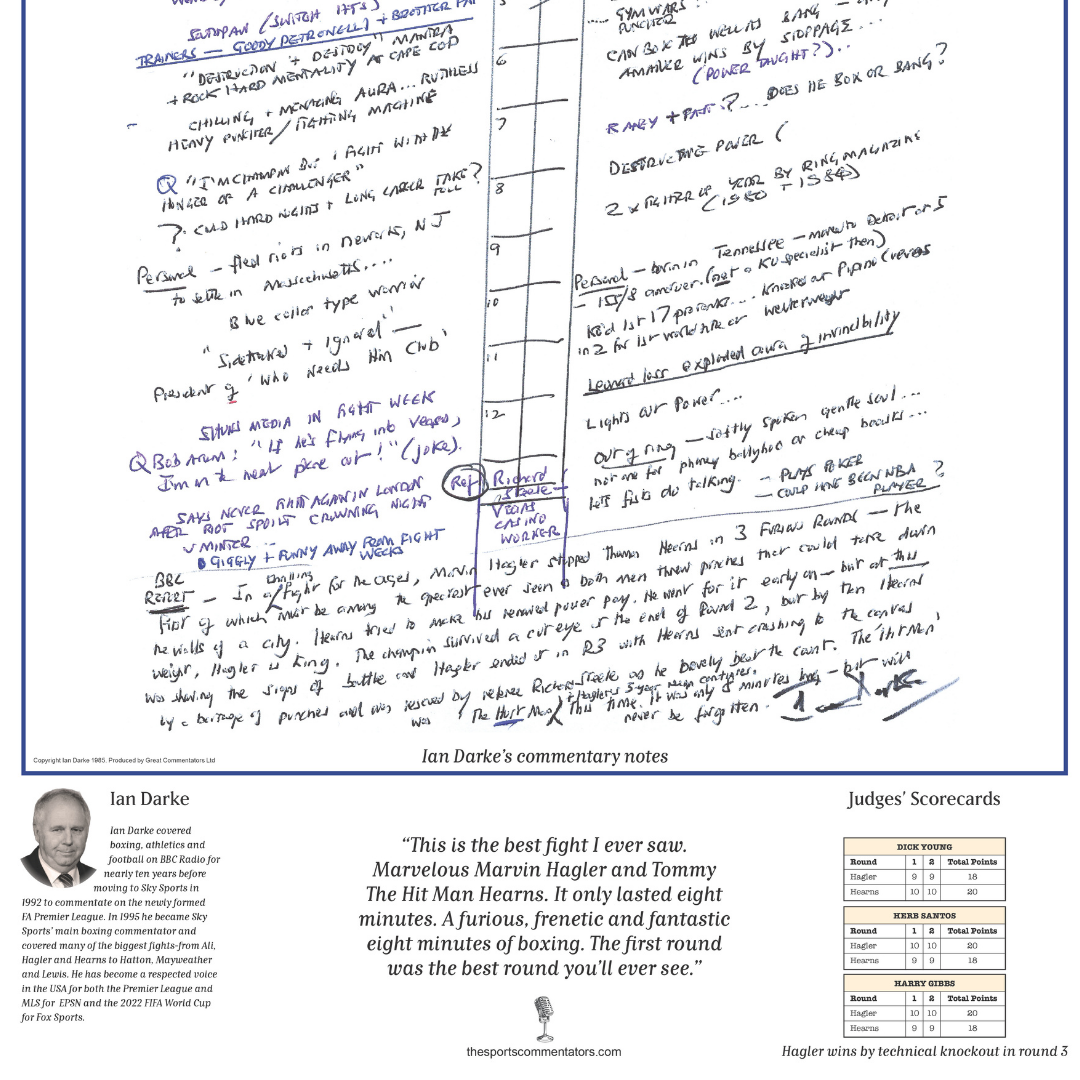 SOUTHPAW (SWITCH HITS)
TRAINERS — GOODY PETRONELLI + BROTHER PAT
"DESTRUCTION + DESTROY" MANTRA
+ ROCK HARD MENTALITY AT CAPE COD
CHILLING + MENACING AURA... RUTHLESS
HEAVY PUNCHER / FIGHTING MACHINE
Q "I'M CHAMPION BUT I FIGHT WITH THE
HUNGER OF A CHALLENGER"
?. COLD HARD NIGHTS + LONG CAREER TAKE TOLL?
Personal — fled riots in Newark, NJ
to settle in Massachusetts....
Blue collar type warrior
"Sidetracked + Ignored" —
President of 'Who Needs Him Club'
SHUNS MEDIA IN FIGHT WEEK
Q Bob Arum: "If he's flying into Vegas,
I'm on the next plane out!" (joke).
SAYS NEVER FIGHT AGAIN IN LONDON
AFTER RIOT SPOILT CROWNING NIGHT
V MINTER
GIGGLY + FUNNY AWAY FROM FIGHT
WEEKS
5
6
7
8
9
10
11
12
Ref Richard
Steele —
VEGAS
CASINO
WORKER
GYM WARS
PUNCHER
CAN BOX AS WELL AS BANG —
AMATEUR WINS BY STOPPAGE...
(POWER TAUGHT?)..
RANGY + FAST?.... DOES HE BOX OR BANG?
DESTRUCTIVE POWER (
2 x FIGHTER OF YEAR BY RING MAGAZINE
(1980 + 1984)
Personal — born in Tennessee — moved to Detroit at 5
— 155/8 amateur. (not a KO specialist then)
KO'd 1st 17 pro opponents.... Knocked out Pipino Cuevas
in 2 for 1st world title at welterweight
Leonard loss exploded aura of invincibility
Lights out Power....
Out of ring — softly spoken gentle soul...
not one for phoney ballyhoo or cheap boasts...
Lets fists do talking. — PLAYS POKER
— COULD HAVE BEEN NBA PLAYER?
BBC
REPORT — In a thrilling fight for the ages, Marvin Hagler stopped Thomas Hearns in 3 FURIOUS ROUNDS — the
first of which must be among the greatest ever seen as both men threw punches that could tear down
the walls of a city. Hearns tried to make his renowned power pay. He went for it early on — but at this
weight, Hagler is King. The champion survived a cut eye at the end of Round 2, but by then Hearns
was showing the signs of battle and Hagler ended it in R3 with Hearns sent crashing to the canvas
by a barrage of punches and was rescued by referee Richard Steele as he bravely beat the count. The 'Hit Man'
was 'The Hurt Man' this time. + Hagler's 5-year reign continues. It was only 8 minutes long — but will
never be forgotten.
Copyright Ian Darke 1985. Produced by Great Commentators Ltd
Ian Darke's commentary notes
Ian Darke
Ian Darke covered
boxing, athletics and
football on BBC Radio for
nearly ten years before
moving to Sky Sports in
1992 to commentate on the newly formed
FA Premier League. In 1995 he became Sky
Sports' main boxing commentator and
covered many of the biggest fights-from Ali,
Hagler and Hearns to Hatton, Mayweather
and Lewis. He has become a respected voice
in the USA for both the Premier League and
MLS for EPSN and the 2022 FIFA World Cup
for Fox Sports.
"This is the best fight I ever saw.
Marvelous Marvin Hagler and Tommy
The Hit Man Hearns. It only lasted eight
minutes. A furious, frenetic and fantastic
eight minutes of boxing. The first round
was the best round you'll ever see."
thesportscommentators.com
Judges' Scorecards
DICK YOUNG
Round 1 2 Total Points
Hagler 9 9 18
Hearns 10 10 20
HERB SANTOS
Round 1 2 Total Points
Hagler 10 10 20
Hearns 9 9 18
HARRY GIBBS
Round 1 2 Total Points
Hagler 10 10 20
Hearns 9 9 18
Hagler wins by technical knockout in round 3